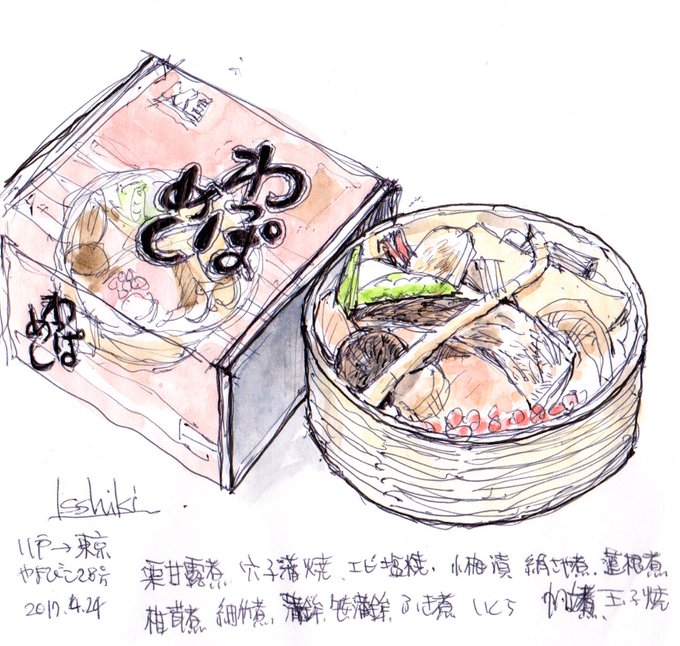 わっぱ
めし
わっぱ
めし
Isshiki
八戸→東京
やまびこ28号
2017.4.24
栗甘露煮、穴子蒲焼、エビ塩焼、小梅漬 絹さや煮、蓮根煮
椎茸煮、細竹煮、蒲鉾、笹蒲鉾、ふき煮 いくら 玉子焼